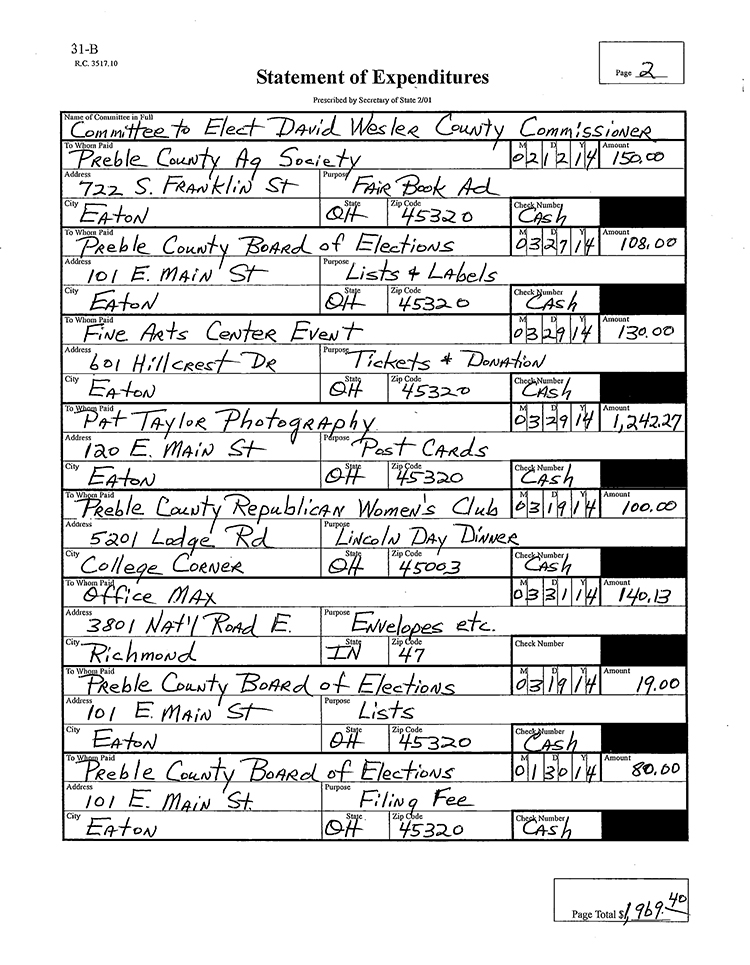 31-B
R.C. 3517.10
Page 2
Statement of Expenditures
Prescribed by Secretary of State 2/01
Name of Committee in Full
Committee to Elect David Wesler County Commissioner
To Whom Paid M D Y Amount
Preble County Ag Society 02 12 14 150.00
Address Purpose
722 S. Franklin St Fair Book Ad
City State Zip Code Check Number
Eaton OH 45320 Cash
To Whom Paid M D Y Amount
Preble County Board of Elections 03 27 14 108.00
Address Purpose
101 E. Main St Lists & Labels
City State Zip Code Check Number
Eaton OH 45320 Cash
To Whom Paid M D Y Amount
Fine Arts Center Event 03 29 14 130.00
Address Purpose
601 Hillcrest Dr Tickets & Donation
City State Zip Code Check Number
Eaton OH 45320 Cash
To Whom Paid M D Y Amount
Pat Taylor Photography 03 29 14 1,242.27
Address Purpose
120 E. Main St Post Cards
City State Zip Code Check Number
Eaton OH 45320 Cash
To Whom Paid M D Y Amount
Preble County Republican Women's Club 03 19 14 100.00
Address Purpose
5201 Lodge Rd Lincoln Day Dinner
City State Zip Code Check Number
College Corner OH 45003 Cash
To Whom Paid M D Y Amount
Office Max 03 31 14 140.13
Address Purpose
3801 Nat'l Road E. Envelopes etc.
City State Zip Code Check Number
Richmond IN 47
To Whom Paid M D Y Amount
Preble County Board of Elections 03 19 14 19.00
Address Purpose
101 E. Main St Lists
City State Zip Code Check Number
Eaton OH 45320 Cash
To Whom Paid M D Y Amount
Preble County Board of Elections 01 30 14 80.00
Address Purpose
101 E. Main St. Filing Fee
City State Zip Code Check Number
Eaton OH 45320 Cash
Page Total $1,969.40